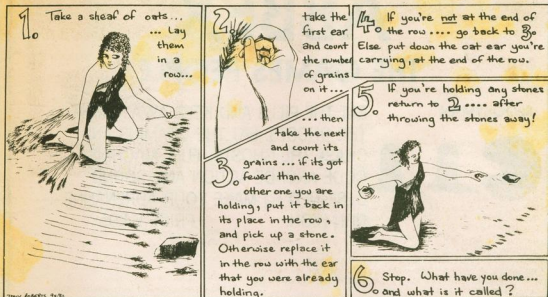 1. Take a sheaf of oats...
... lay
them
in a
row...
2. take the
first ear
and count
the number
of grains
on it...
... then
take the next
and count its
3. grains ... if its got
fewer than the
other one you are
holding, put it back in
its place in the row,
and pick up a stone.
Otherwise replace it
in the row with the ear
that you were already
holding.
4. If you're not at the end of
the row .... go back to 3.
Else put down the oat ear you're
carrying, at the end of the row.
5. If you're holding any stones
return to 2 .... after
throwing the stones away!
6. Stop. What have you done...
and what is it called?